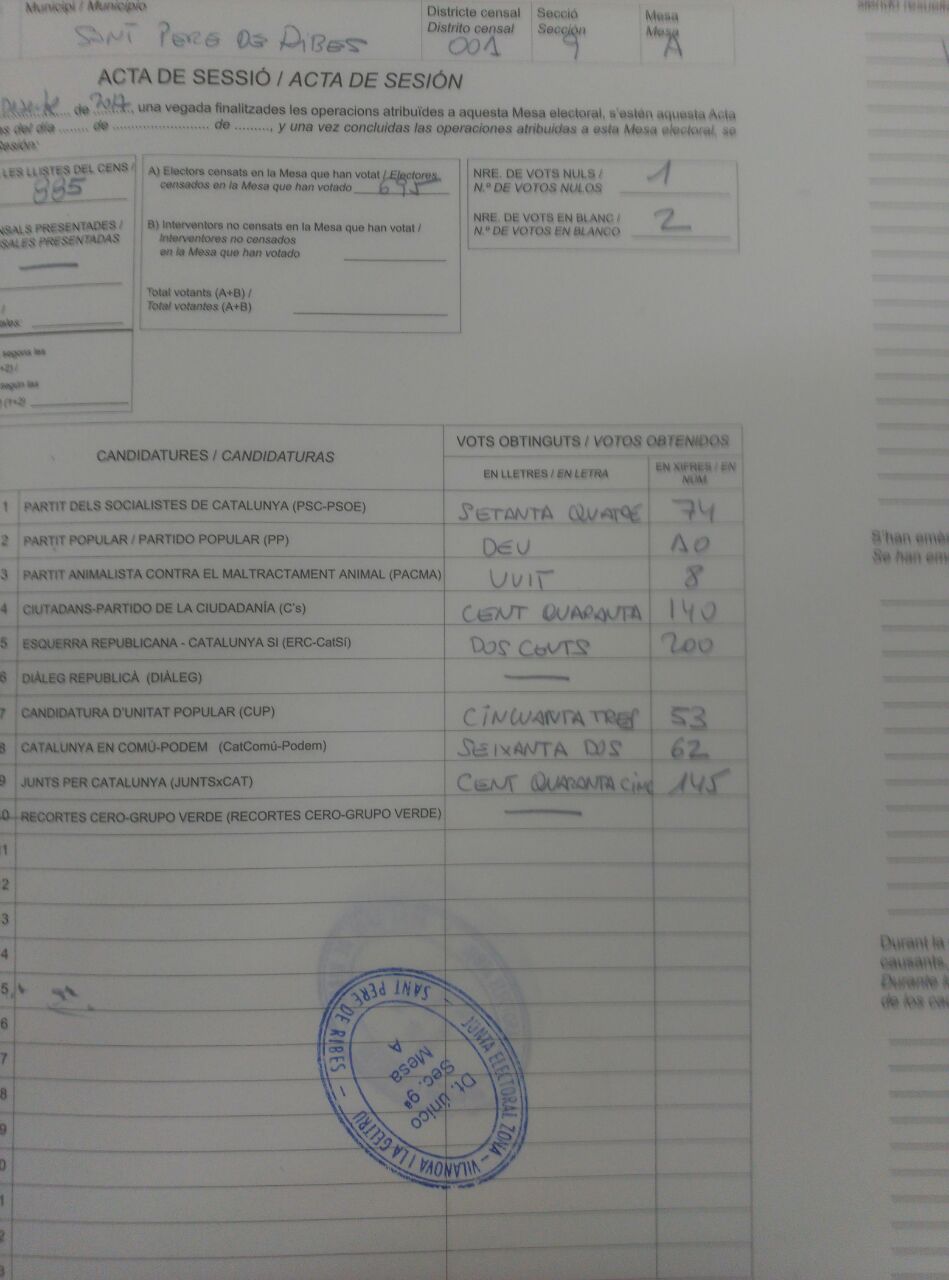 Municipi / Municipio
SANT PERE DE RIBES
Districte censal
Distrito censal
001
Secció
Sección
9
Mesa
Mesa
A
ACTA DE SESSIÓ / ACTA DE SESIÓN
de 2017, una vegada finalitzades les operacions atribuïdes a aquesta Mesa electoral, s'estén aquesta Acta
as del día ........ de ........................ de ........., y una vez concluidas las operaciones atribuidas a esta Mesa electoral, se
Sesión:
LES LLISTES DEL CENS /
885
NSALS PRESENTADES /
SALES PRESENTADAS
—
ales:
segons les
+2) /
según las
(1+2)
A) Electors censats en la Mesa que han votat / Electores
censados en la Mesa que han votado 695
B) Interventors no censats en la Mesa que han votat /
Interventores no censados
en la Mesa que han votado
Total votants (A+B) /
Total votantes (A+B)
NRE. DE VOTS NULS /
N.º DE VOTOS NULOS
1
NRE. DE VOTS EN BLANC /
N.º DE VOTOS EN BLANCO
2
CANDIDATURES / CANDIDATURAS
VOTS OBTINGUTS / VOTOS OBTENIDOS
EN LLETRES / EN LETRA
EN XIFRES / EN
NÚM.
1 PARTIT DELS SOCIALISTES DE CATALUNYA (PSC-PSOE) SETANTA QUATRE 74
2 PARTIT POPULAR / PARTIDO POPULAR (PP) DEU 10
3 PARTIT ANIMALISTA CONTRA EL MALTRACTAMENT ANIMAL (PACMA) VUIT 8
4 CIUTADANS-PARTIDO DE LA CIUDADANÍA (C's) CENT QUARANTA 140
5 ESQUERRA REPUBLICANA - CATALUNYA SI (ERC-CatSí) DOS CENTS 200
6 DIÀLEG REPUBLICÀ (DIÀLEG) —
7 CANDIDATURA D'UNITAT POPULAR (CUP) CINCUANTA TRES 53
8 CATALUNYA EN COMÚ-PODEM (CatComú-Podem) SEIXANTA DOS 62
9 JUNTS PER CATALUNYA (JUNTSxCAT) CENT QUARANTA CINC 145
0 RECORTES CERO-GRUPO VERDE (RECORTES CERO-GRUPO VERDE) —
1
2
3
4
5
6
7
8
9
0
1
2
3
JUNTA ELECTORAL ZONA – VILANOVA I LA GELTRÚ
– SANT PERE DE RIBES –
Dt. único
Sec. 9ª
Mesa
A
S'han emè
Se han em
Durant la
causants,
Durante l
de los ca